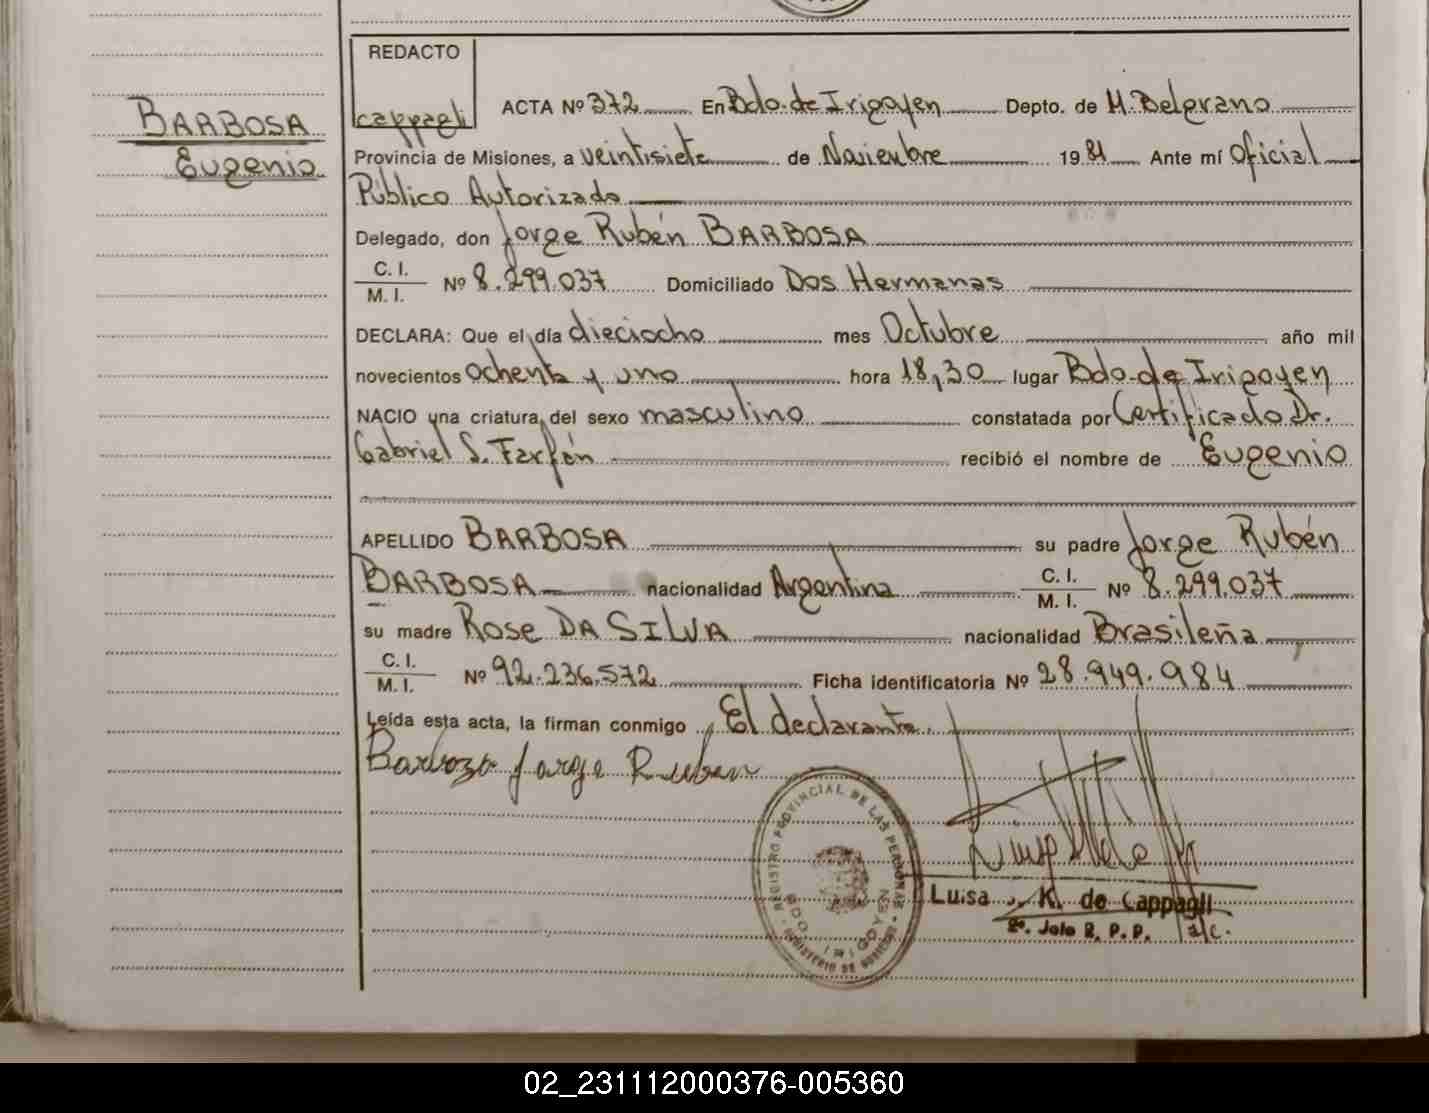 REDACTO
cappagli
BARBOSA
Eugenio
ACTA Nº 372 En Bdo. de Irigoyen Depto. de M. Belgrano
Provincia de Misiones, a veintisiete de Noviembre 1981 Ante mí Oficial
Público Autorizado
Delegado, don Jorge Rubén BARBOSA
C. I.
M. I.
Nº 8.299.037 Domiciliado Dos Hermanas
DECLARA: Que el día dieciocho mes Octubre año mil
novecientos ochenta y uno hora 18,30 lugar Bdo. de Irigoyen
NACIO una criatura del sexo masculino constatada por Certificado Dr.
Gabriel S. Farfán recibió el nombre de Eugenio
APELLIDO BARBOSA su padre Jorge Rubén
BARBOSA nacionalidad Argentina C. I. M. I. Nº 8.299.037
su madre Rose DA SILVA nacionalidad Brasileña
C. I.
M. I.
Nº 92.236.572 Ficha identificatoria Nº 28.949.984
Leída esta acta, la firman conmigo, El declarante.
Barboza Jorge Ruben
REGISTRO PROVINCIAL DE LAS PERSONAS
BDO. IRIGOYEN
MINISTERIO DE GOBIERNO
Luisa K. de Cappagli
2º. Jefe R. P. P. a/c.
02_231112000376-005360